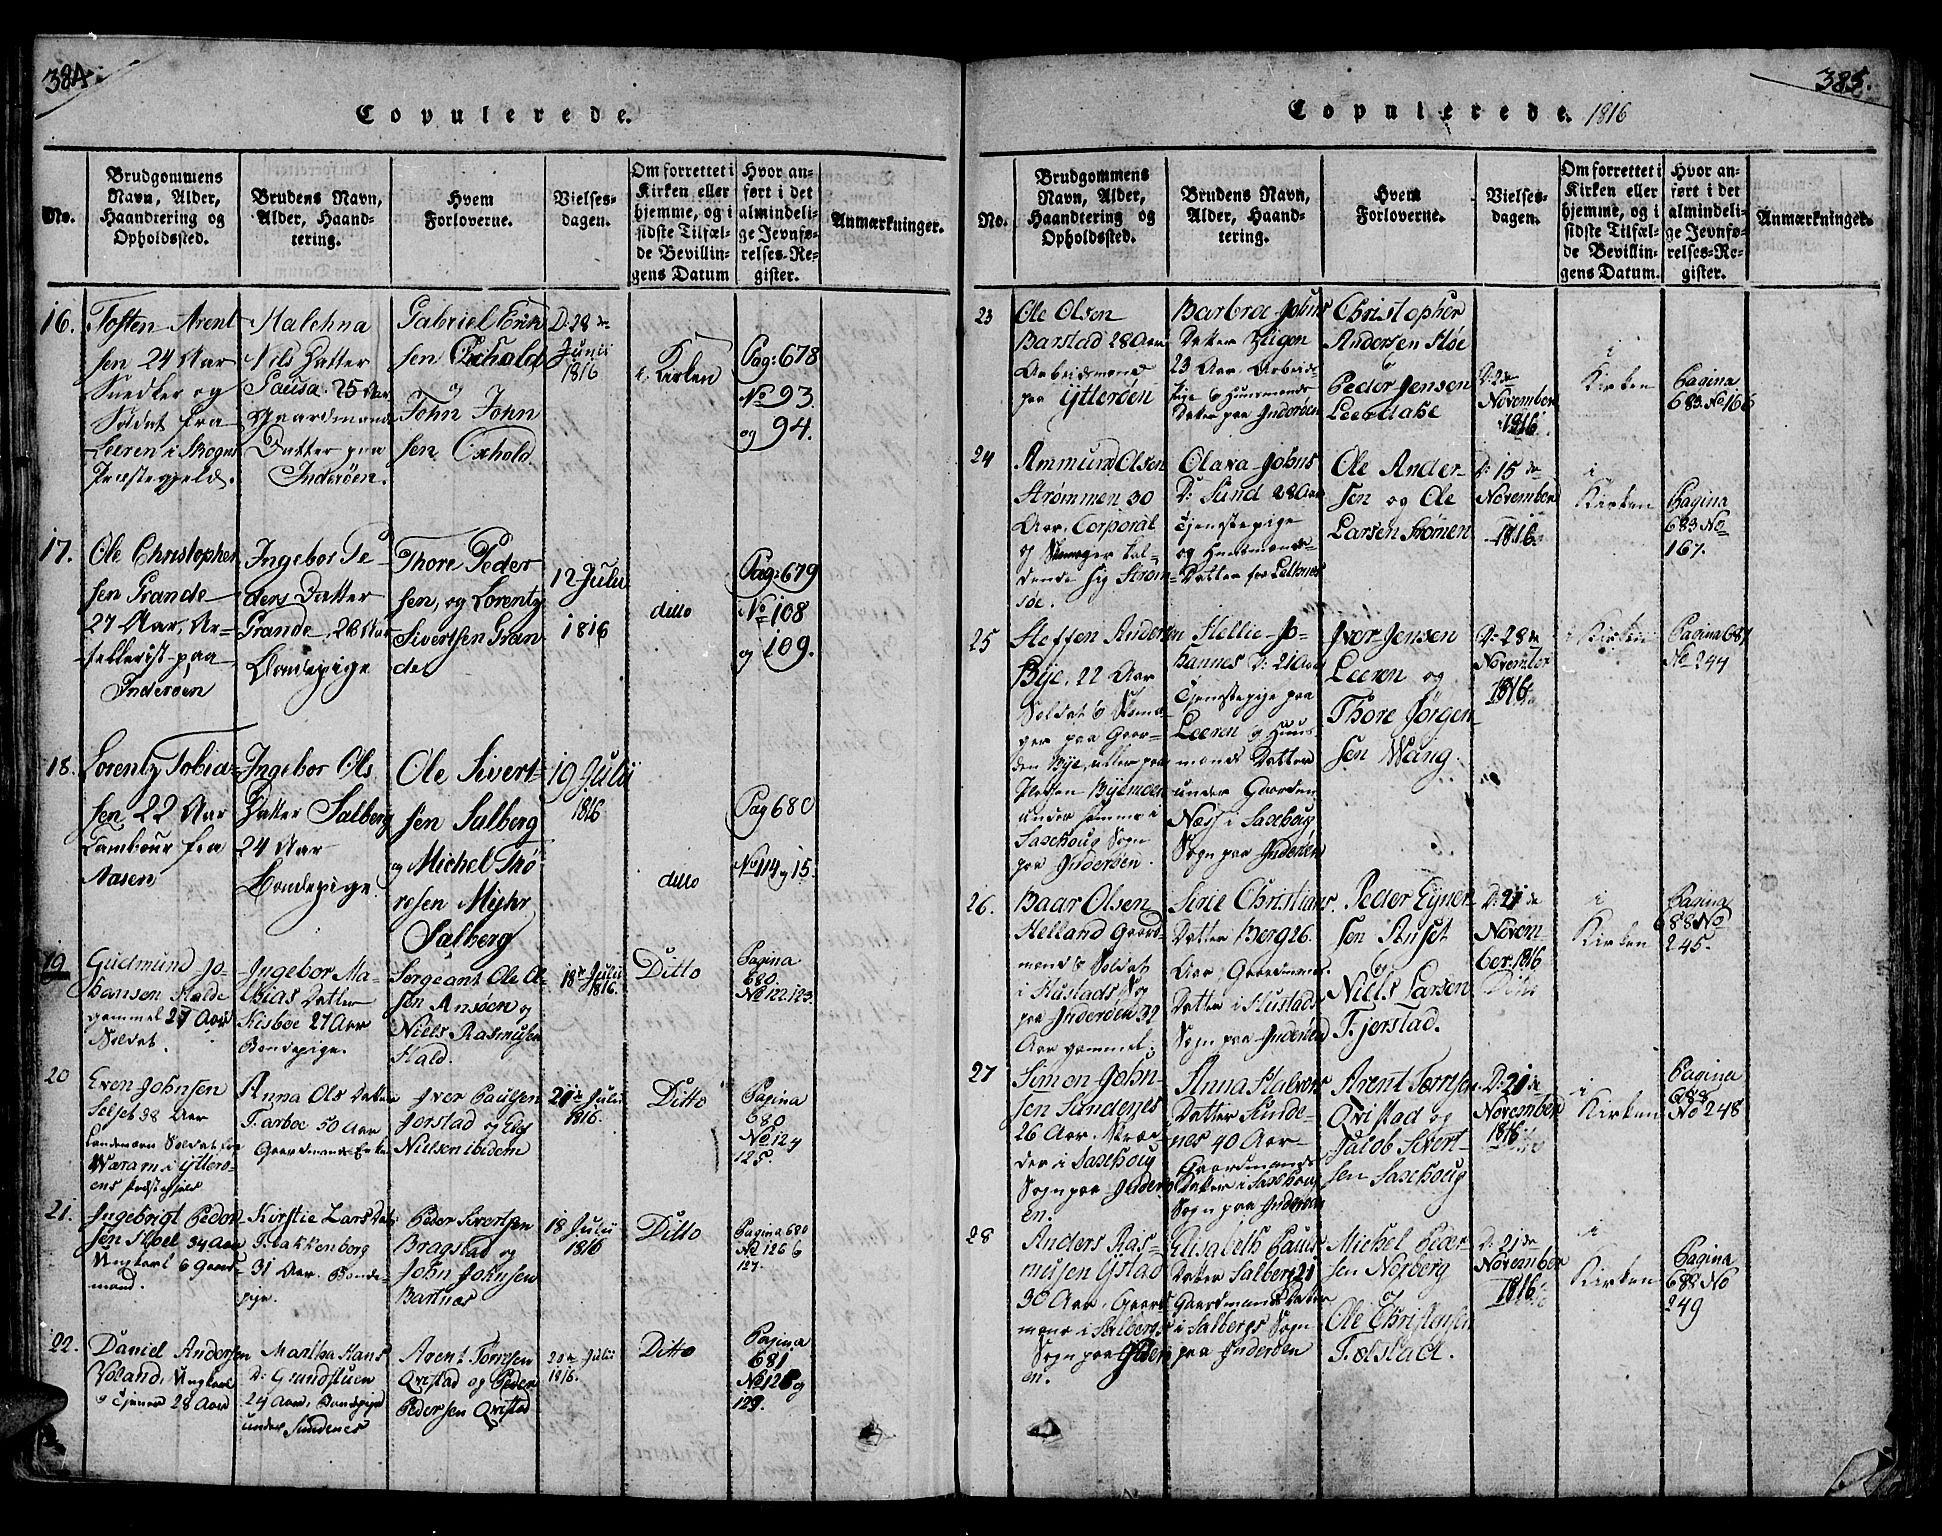 384.
Copulerede.
No.
Brudgommens
Navn, Alder,
Haandtering og
Opholdssted.
Brudens Navn,
Alder, Haand-
tering.
Hvem
Forloverne.
Vielses-
dagen.
Om forrettet i
Kirken eller
hjemme, og i
sidste Tilfæl-
de Bevillin-
gens Datum
Hvor an-
ført i det
almindeli-
ge Jevnfø-
relses-Re-
gister.
Anmærkninger.
16.
Tosten Arent
sen 24 Aar
Snedker og
Soldat fra
Leeren i Skogns
Præstegjeld.
Malehna
Nils Datter
Sausa. 25 Aar
Gaardmands
Datter paa
Inderøen.
Gabriel Erik
sen Oxhold
og
John John
sen Oxhold.
D. 28 de
Junii
1816
i Kirken
Pag: 678
No 93.
og 94.
17.
Ole Christopher
sen Grande
27 Aar, Ar=
tellerist paa
Inderøen
Ingebor Pe=
ders Datter
Grande, 28 Aar
Bondepige
Thore Peder
sen, og Lorentz
Sivertsen Gran
de.
12 Julii
1816
ditto
Pag: 679
No 108
og 109.
18.
Lorentz Tobia=
sen 22 Aar
Tambour fra
Aasen
Ingebor Ols
Datter Salberg
24 Aar
Bondepige
Ole Sivert=
sen Salberg
og Michel Thø=
resen Myhr
Salberg
19 Julii
1816
ditto
Pag 680
No 114 og 15.
19
Gudmund Jo=
hansen Halde
gammel 27 Aar
Soldat.
Ingebor Ma=
thias Datter
Kisboe 27 Aar
Bondepige.
Sergeant Ole Ol=
sen Ansøen og
Niels Rasmusen
Hald.
18de Julii
1816.
Ditto
Pagina
680.
No 122. 123.
20
Even Johnsen
Selset 38 Aar
Landeværn Soldat fra
Waram i Ytterø=
ens Præstegield
Anna Ols Datter
Tarboe 50 Aar
Gaardmands Enke
Iver Paulsen
Jorstad og Elles
Nielsen ibidem
21de Julii
1816.
Ditto
Pagina
680
No 124
125.
21.
Ingebrigt Peder
sen Moel 34 Aar
Ungkarl & Gaard
mand.
Kirstie Lars Dat:
Hakkenborg
31 Aar. Bonde=
pige.
Peder Sivertsen
Bragstad og
John Johnsen
Bartnæs
18 Julii
1816
Ditto
Pagina 680
No 126 &
127.
22.
Daniel Andersen
Voland, Ungkarl
& Tjener 28 Aar
Martha Hans
D: Grundstuen
24 Aar, Bondepige
under Sundenes
Arent Torrisen
Qvistad og Peder
Pedersen Qvistad
20de Julii
1816.
Ditto
Pagina
681
No 128 og
129.
385.
Copulerede. 1816
No.
Brudgommens
Navn, Alder,
Haandtering og
Opholdssted.
Brudens Navn,
Alder, Haand-
tering.
Hvem
Forloverne.
Vielses-
dagen.
Om forrettet i
Kirken eller
hjemme, og i
sidste Tilfæl-
de Bevillin-
gens Datum.
Hvor an-
ført i det
almindeli-
ge Jevnfø-
relses-Re-
gister.
Anmærkninger.
23
Ole Olsen
Barstad 28 Aar
Arbeidsmand
paa Ytterøen
Barbroe Johns
Datter Hligen
23 Aar. Arbeids
pige & Huusmands
Datter paa Inderøen
Christopher
Andersen Støe
&
Peder Jensen
Leebdahe
D: 2de
November
1816.
i
Kirken
Pagina
683. No 166
24
Ammund Olsen
Strømmen 30
Aar. Corporal
og kal=
dende sig Strøm=
søe.
Olava Johns
D: Sund 28 Aar
Tjenstepige
og Huusmands
Datter fra Leiknes
Ole Ander=
sen og Ole
Larsen Strømen
D: 15de
November
1816.
i
Kirken
Pagina
683 No
167.
25
Steffen Andersen
Bye, 22 Aar
Soldat & Skoma=
ger paa Gaar=
den Bye, eller paa
Pladsen Byemoen
under samme i
Saxhoug Sogn
paa Inderøen.
Hellie Jo=
hannes D: 21 Aar
Tjenstepige paa
Leeren og Huus
mands Datter
under Gaarden
Næss i Saxhoug
Sogn paa Inderøen
Iver Jensen
Leeren og
Thore Jørgen
sen Wang.
D: 28de
November
1816.
i Kirken
Pagina 687
No 244
26.
Baar Olsen
Helland Gaard
mand & Soldat
i Hustads Sogn
paa Inderøen 32
Aar gammel.
Sirie Christians
Datter Berg 26.
Aar, Gaardmands
Datter i Hustads
Sogn paa Inderøen
Peder Eyner
sen Auset
og
Niels Larsen
Fjerstad.
D: 21de
Novem=
ber. 1816
i
Kirken
Pagina
688 No
245.
27
Simon John=
sen Sundenes
26 Aar. Skræd
der i Saxhoug
Sogn paa Inderø
en.
Anna Halvors
Datter Sunde=
nes 40 Aar
Gaardmands
Datter i Saxhoug
Sogn paa Inderøen
Arent Torrisen
Qvistad og
Jacob Sivert=
sen Saxhoug
D: 21de
November
1816
i
Kirken
Pagina
688
No 248
28
Anders Ras=
musen Ystad
30 Aar. Gaard
mand i Salbergs
Sogn paa Inderø
en.
Elisabeth Pauls
Datter Salberg 21
Gaardmands Datter
i Salbergs Sogn
paa Inderøen
Michel Peder=
sen Norberg
og
Ole Christensen
Tolstad.
D: 21de
November
1816
i
Kirken
Pagina
688 No
249